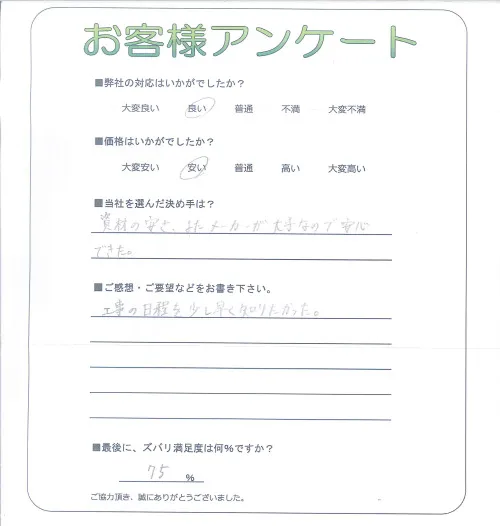 お客様アンケート
■弊社の対応はいかがでしたか？
大変良い 良い 普通 不満 大変不満
■価格はいかがでしたか？
大変安い 安い 普通 高い 大変高い
■当社を選んだ決め手は？
資材の安さ、またメーカーが大手なので安心
できた。
■ご感想・ご要望などをお書き下さい。
工事の日程を少し早く知りたかった。
■最後に、ズバリ満足度は何%ですか？
75 %
ご協力頂き、誠にありがとうございました。